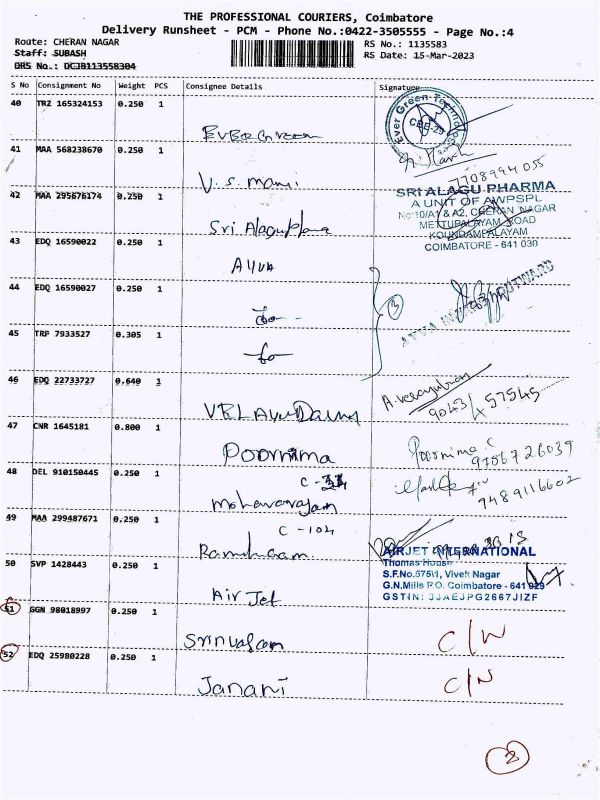 THE PROFESSIONAL COURIERS, Coimbatore
Delivery Runsheet - PCM - Phone No.:0422-3505555 - Page No.:4
Route: CHERAN NAGAR
RS No.: 1135583
Staff: SUBASH
RS Date: 15-Mar-2023
DRS No.: DCJB113558304
S No Consignment No Weight PCS Consignee Details Signature
40 TRZ 165324153 0.250 1
EVERGREEN
Ever Green Technolo
CBE-29
41 MAA 568238670 0.250 1
V.S. mani
7708994055
42 MAA 295676174 0.250 1
Sri Alagu
SRI ALAGU PHARMA
A UNIT OF AWPSPL
No:10/A1 & A2, CHERAN NAGAR
METTUPALAYAM ROAD
KOUNDAMPALAYAM
COIMBATORE - 641 030
43 EDQ 16590022 0.250 1
AYVA
44 EDQ 16590027 0.250 1
3
45 TRP 7933527 0.305 1
46 EDQ 22733727 0.640 1
VRL
9043/ 57545
47 CNR 1645181 0.800 1
Poornima
Poornima C
9566726039
48 DEL 910150445 0.250 1
C-
7489116602
49 MAA 299487671 0.250 1
C-104
50 SVP 1428443 0.250 1
Air Jet
AIRJET INTERNATIONAL
Thomas House
S.F.No.575/1, Vivek Nagar
G.N.Mills P.O. Coimbatore - 641 029
GSTIN: 33AEJPG2667J1ZF
51 GGN 98018997 0.250 1
Srinivasan
C/N
52 EDQ 25980228 0.250 1
Janani
C/N
2